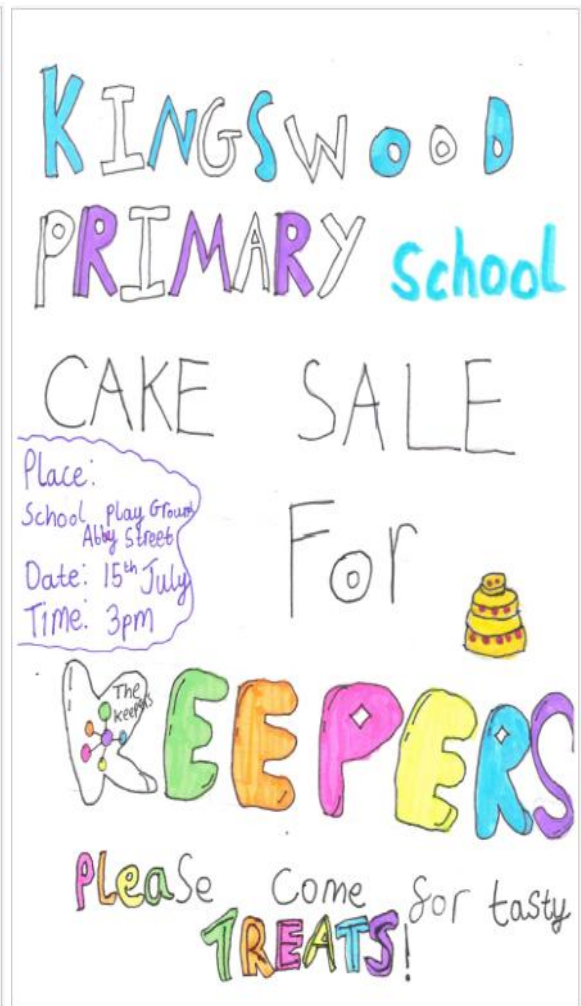 KINGSWOOD
PRIMARY School
CAKE SALE
Place:
School Play Ground
Abby Street
Date: 15th July
Time: 3pm
For
The
Keepers
KEEPERS
PLeaSe Come for tasty
TREATS!